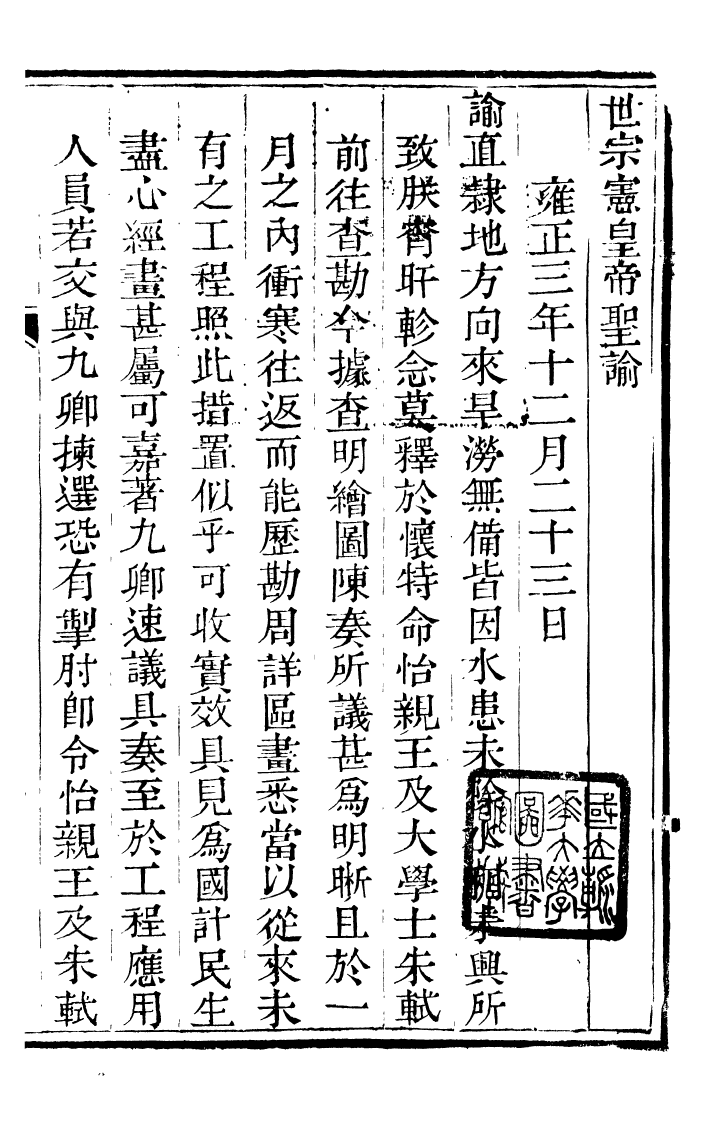 世宗憲皇帝聖諭
雍正三年十二月二十三日
諭直隸地方向來旱澇無備皆因水患未除水利未興所
致朕宵旰軫念莫釋於懷特命怡親王及大學士朱軾
前往查勘今據查明繪圖陳奏所議甚爲明晰且於一
月之內衝寒往返而能歷勘周詳區畫悉當以從來未
有之工程照此措置似乎可收實效具見爲國計民生
盡心經畫甚屬可嘉著九卿速議具奏至於工程應用
人員若交與九卿揀選恐有掣肘卽令怡親王及朱軾
國立
華大學
圖書